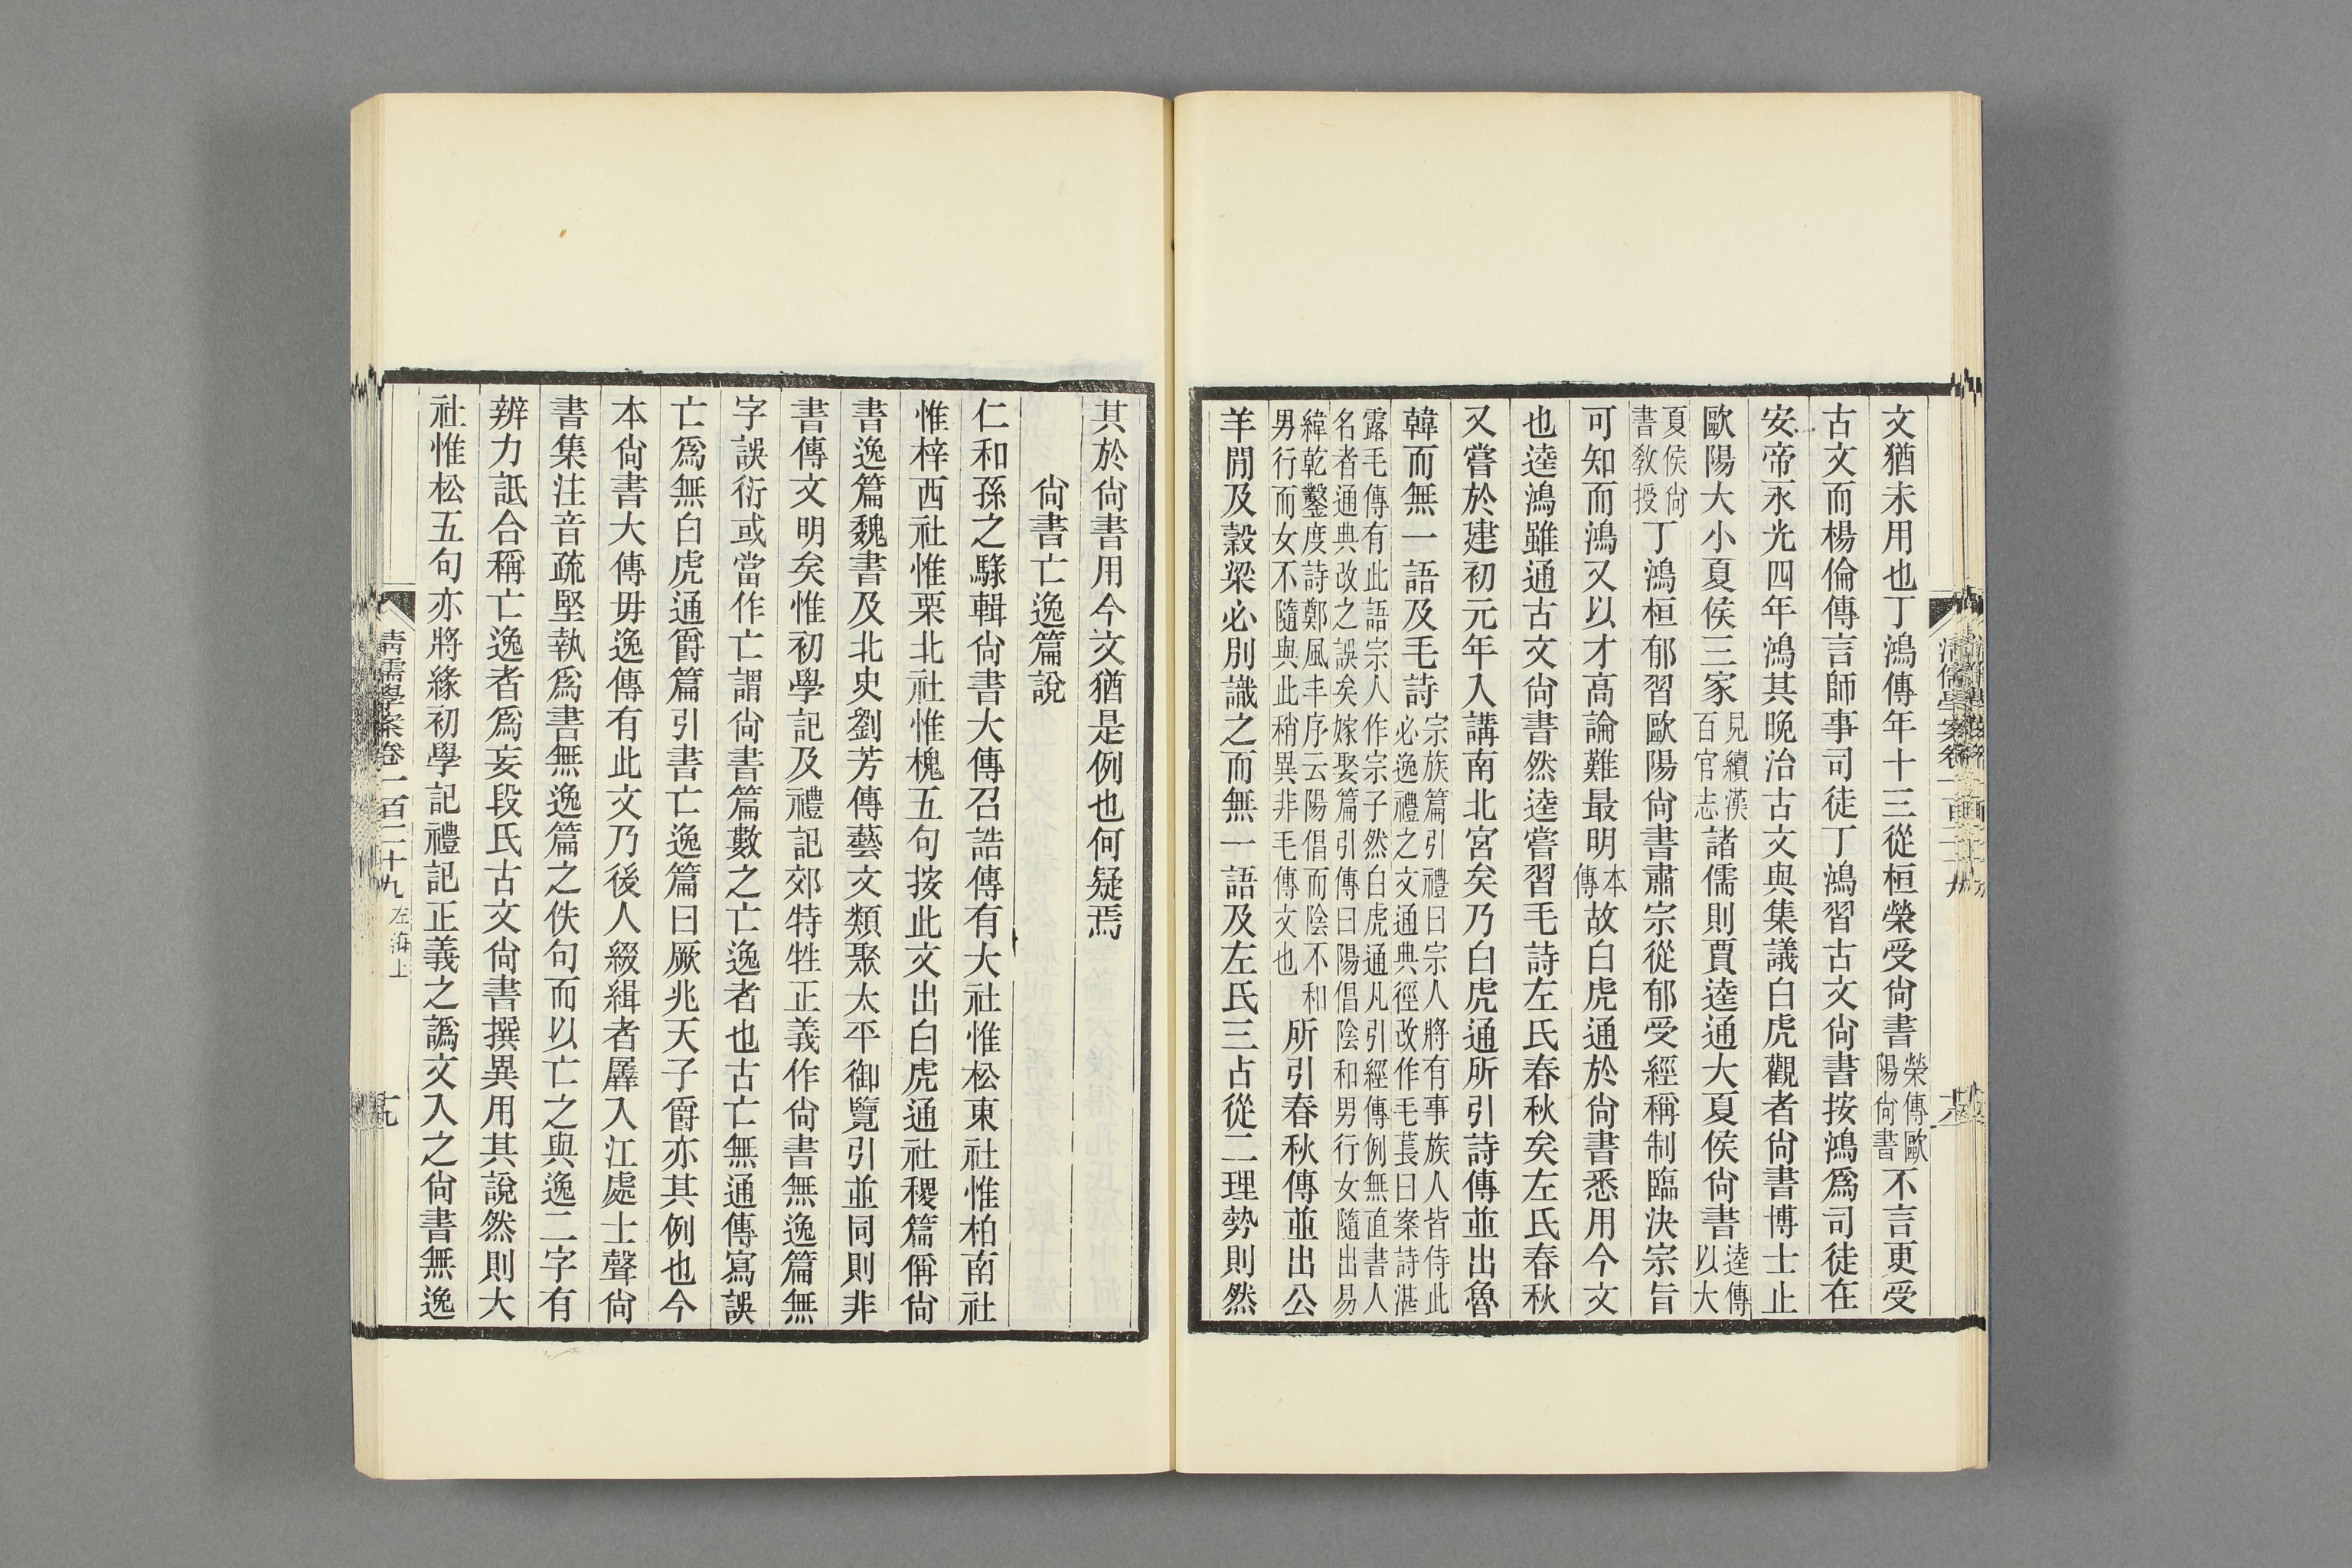 文猶未用也丁鴻傳年十三從桓榮受尙書榮傳歐陽尙書不言更受
古文而楊倫傳言師事司徒丁鴻習古文尙書按鴻爲司徒在
安帝永光四年鴻其晚治古文與集議白虎觀者尙書博士止
歐陽大小夏侯三家見續漢百官志諸儒則賈逵通大夏侯尙書逵傳以大
夏侯尙書敎授丁鴻桓郁習歐陽尙書肅宗從郁受經稱制臨決宗旨
可知而鴻又以才高論難最明本傳故白虎通於尙書悉用今文
也逵鴻雖通古文尙書然逵嘗習毛詩左氏春秋矣左氏春秋
又嘗於建初元年入講南北宮矣乃白虎通所引詩傳並出魯
韓而無一語及毛詩宗族篇引禮曰宗人將有事族人皆侍此必逸禮之文通典徑改作毛萇曰案詩湛
露毛傳有此語宗人作宗子然白虎通凡引經傳例無直書人名者通典改之誤矣嫁娶篇引傳曰陽倡陰和男行女隨出易
緯乾鑿度詩鄭風丰序云陽倡而陰不和男行而女不隨與此稍異非毛傳文也所引春秋傳並出公
羊閒及穀梁必別識之而無一語及左氏三占從二理勢則然
清儒學案卷一百二十九
十八
其於尙書用今文猶是例也何疑焉
尙書亡逸篇說
仁和孫之騄輯尙書大傳召誥傳有大社惟松東社惟柏南社
惟梓西社惟栗北社惟槐五句按此文出白虎通社稷篇偁尙
書逸篇魏書及北史劉芳傳藝文類聚太平御覽引並同則非
書傳文明矣惟初學記及禮記郊特牲正義作尙書無逸篇無
字誤衍或當作亡謂尙書篇數之亡逸者也古亡無通傳寫誤
亡爲無白虎通爵篇引書亡逸篇曰厥兆天子爵亦其例也今
本尙書大傳毋逸傳有此文乃後人綴緝者羼入江處士聲尙
書集注音疏堅執爲書無逸篇之佚句而以亡之與逸二字有
辨力詆合稱亡逸者爲妄段氏古文尙書撰異用其說然則大
社惟松五句亦將緣初學記禮記正義之譌文入之尙書無逸
清儒學案卷一百二十九 左海上
十九